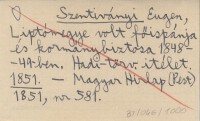 Szentiványi Eugen,
Liptómegye volt főispánja
és kormánybiztosa 1848
-49-ben. Hadi-törv. itélet.
1851. — Magyar Hirlap (Pest)
1851, nr 581.